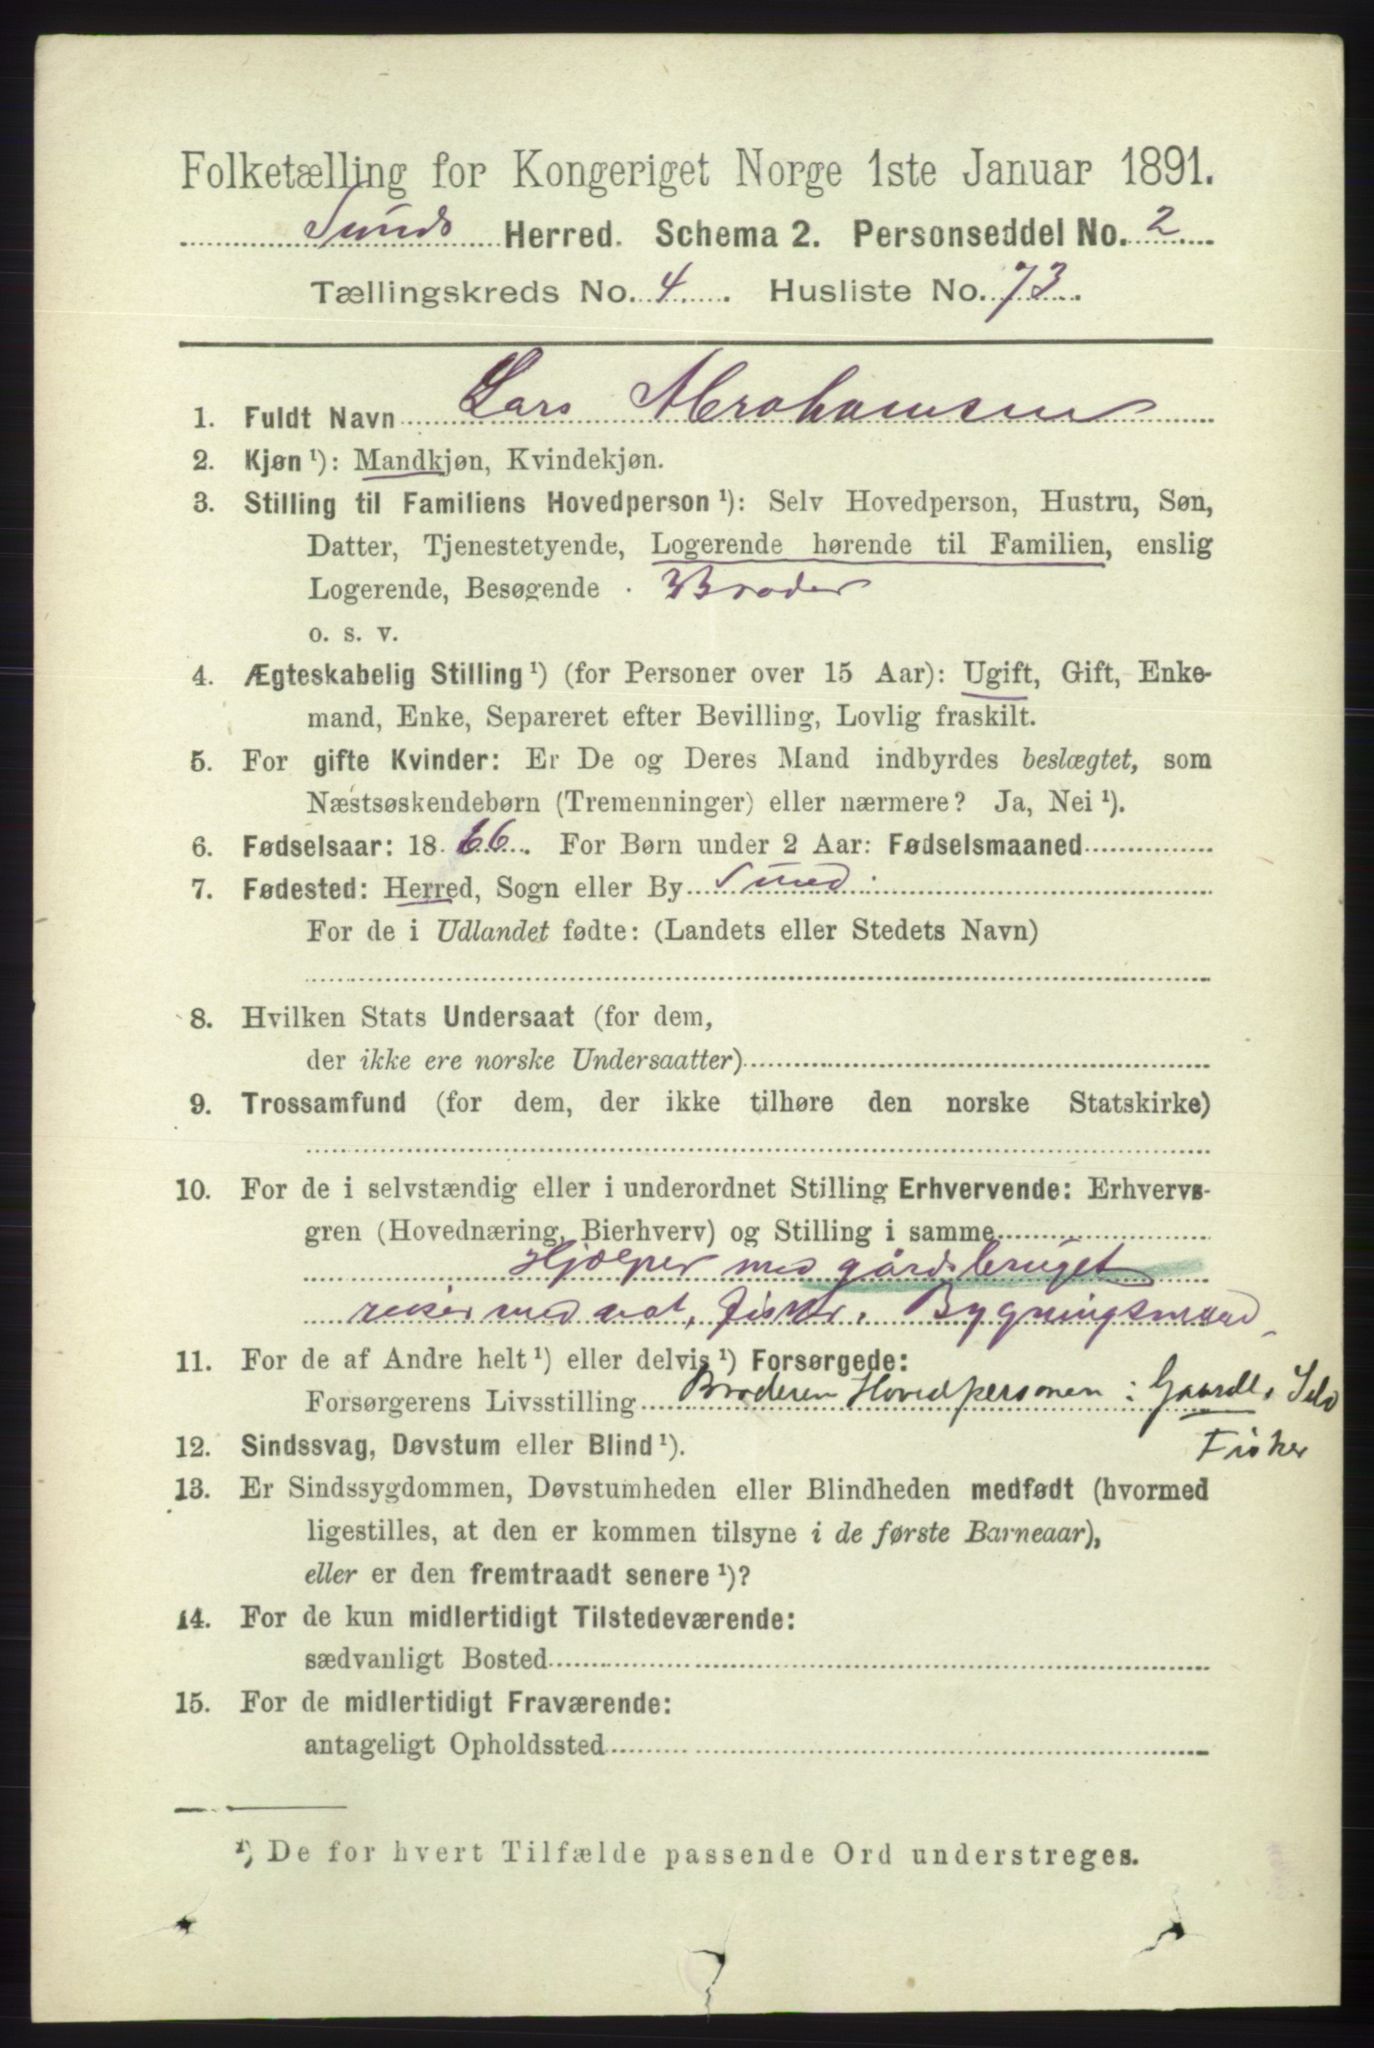 Folketælling for Kongeriget Norge 1ste Januar 1891.
Sunds Herred. Schema 2. Personseddel No. 2
Tællingskreds No. 4. Husliste No. 73.
1. Fuldt Navn Lars Abrahamsen
2. Kjøn ¹): Mandkjøn, Kvindekjøn.
3. Stilling til Familiens Hovedperson ¹): Selv Hovedperson, Hustru, Søn,
Datter, Tjenestetyende, Logerende hørende til Familien, enslig
Logerende, Besøgende · Broder
o. s. v.
4. Ægteskabelig Stilling ¹) (for Personer over 15 Aar): Ugift, Gift, Enke-
mand, Enke, Separeret efter Bevilling, Lovlig fraskilt.
5. For gifte Kvinder: Er De og Deres Mand indbyrdes beslægtet, som
Næstsøskendebørn (Tremenninger) eller nærmere? Ja, Nei ¹).
6. Fødselsaar: 1866. For Børn under 2 Aar: Fødselsmaaned
7. Fødested: Herred, Sogn eller By Sund.
For de i Udlandet fødte: (Landets eller Stedets Navn)
8. Hvilken Stats Undersaat (for dem,
der ikke ere norske Undersaatter)
9. Trossamfund (for dem, der ikke tilhøre den norske Statskirke)
10. For de i selvstændig eller i underordnet Stilling Erhvervende: Erhvervs-
gren (Hovednæring, Bierhverv) og Stilling i samme
Hjælper med gårdsbruget
med not, fisker. Bygningsmand
11. For de af Andre helt ¹) eller delvis ¹) Forsørgede:
Forsørgerens Livsstilling Broderen Hovedpersonen: Gaardb. Selv
Fisker
12. Sindssvag, Døvstum eller Blind ¹).
13. Er Sindssygdommen, Døvstumheden eller Blindheden medfødt (hvormed
ligestilles, at den er kommen tilsyne i de første Barneaar),
eller er den fremtraadt senere ¹)?
14. For de kun midlertidigt Tilstedeværende:
sædvanligt Bosted
15. For de midlertidigt Fraværende:
antageligt Opholdssted
¹) De for hvert Tilfælde passende Ord understreges.